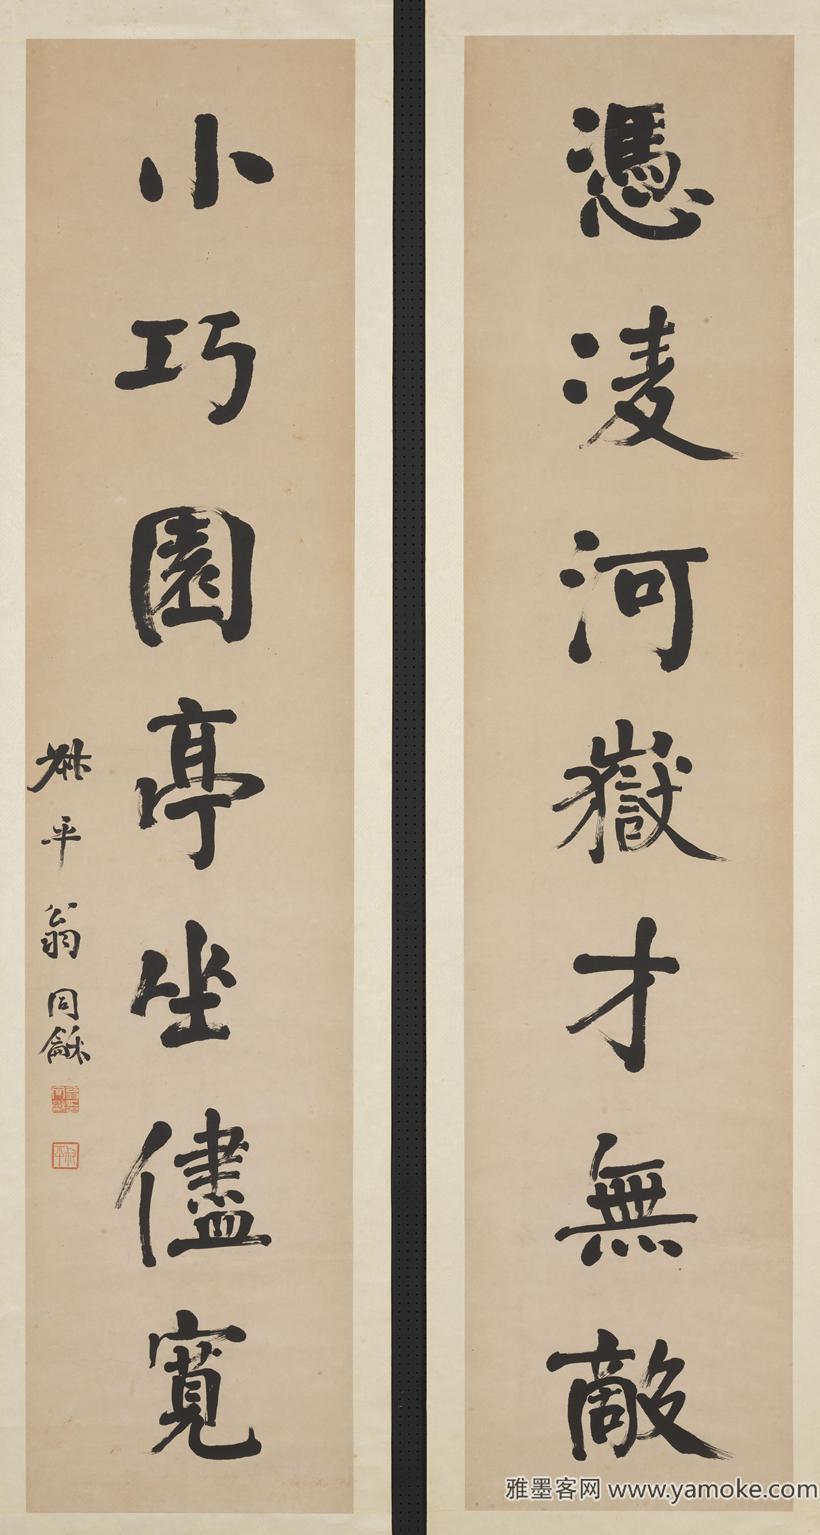 憑凌河嶽才無敵
小巧園亭坐儘寬
叔平翁同龢
雅墨客网 www.yamoke.com